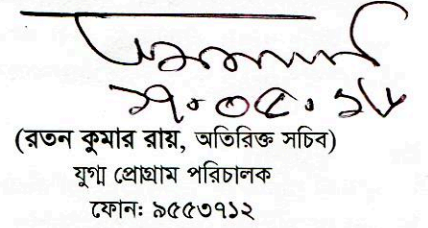 ২৭.০৫.১৮
(রতন কুমার রায়, অতিরিক্ত সচিব)
যুগ্ম প্রোগ্রাম পরিচালক
ফোনঃ ৯৫৫৩৭১২